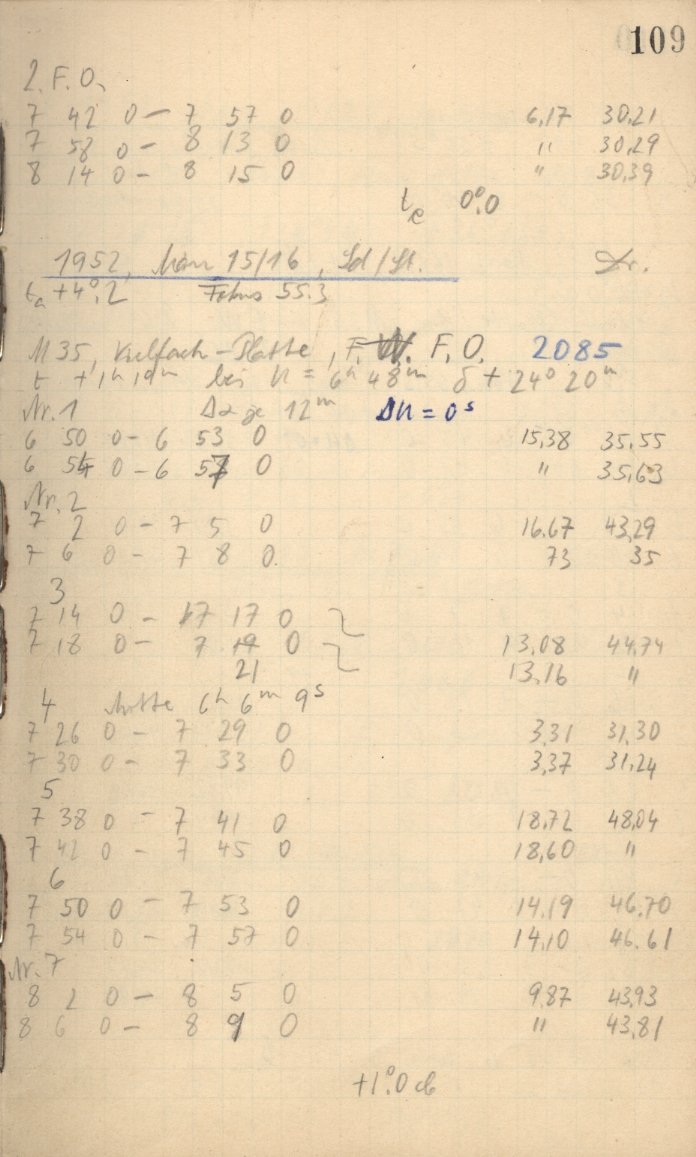 109
2. F. O.
7 42 0 – 7 57 0 6,17 30,21
7 58 0 – 8 13 0 " 30,29
8 14 0 – 8 15 0 " 30,39
te 0°,0
1952, 15/16, Sd/St. Dr.
ta +4°,2 Fokus 55.3
M 35, Vielfach-Platte, F. W. F. O. 2085
t +1h 19m bei U = 6h 48m δ + 24° 20m
Nr. 1 Δα je 12m ΔU = 0s
6 50 0 – 6 53 0 15,38 35,55
6 54 0 – 6 57 0 " 35,63
Nr. 2
7 2 0 – 7 5 0 16,67 43,29
7 6 0 – 7 8 0. 73 35
3
7 14 0 – 7 17 0
7 18 0 – 7 19 0 13,08 44,74
21 13,16 "
4 Mitte 6h 6m 9s
7 26 0 – 7 29 0 3,31 31,30
7 30 0 – 7 33 0 3,37 31,24
5
7 38 0 – 7 41 0 18,72 48,04
7 42 0 – 7 45 0 18,60 "
6
7 50 0 – 7 53 0 14,19 46,70
7 54 0 – 7 57 0 14,10 46,61
Nr. 7
8 2 0 – 8 5 0 9,87 43,93
8 6 0 – 8 9 0 " 43,81
+1°,0